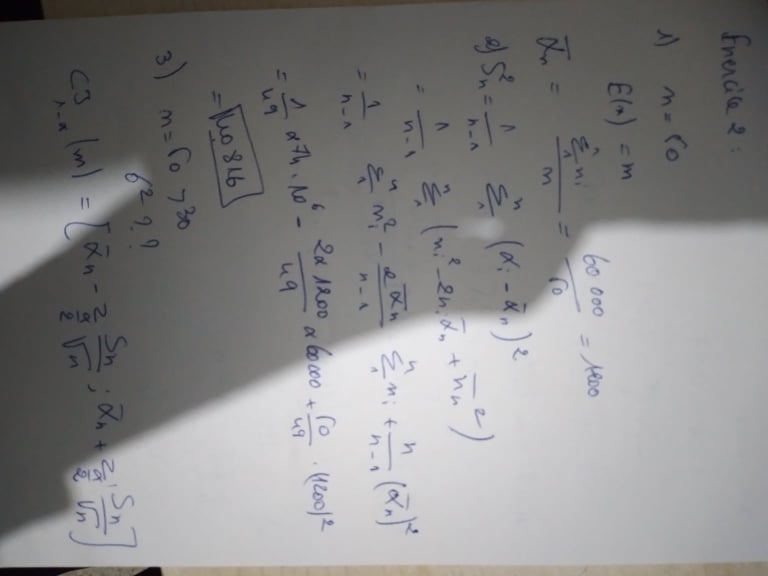 Exercice 2 :
1) n = 50
E(x) = m
x̄n = Σ₁ⁿ ni / n = 60 000 / 50 = 1200
2) S²n = 1/(n-1) Σ₁ⁿ (xi - x̄n)²
= 1/(n-1) Σ₁ⁿ (ni² - 2ni x̄n + x̄n²)
= 1/(n-1) Σ₁ⁿ ni² - 2x̄n/(n-1) Σ₁ⁿ ni + n/(n-1) (x̄n)²
= 1/49 x 74 . 10⁶ - 2 x 1200/49 x 60000 + 50/49 . (1200)²
= 40 816
3) n = 50 > 30
σ² ??
1-α (m) = [x̄n - z α/2 Sn/√n ; x̄n + z α/2 Sn/√n]